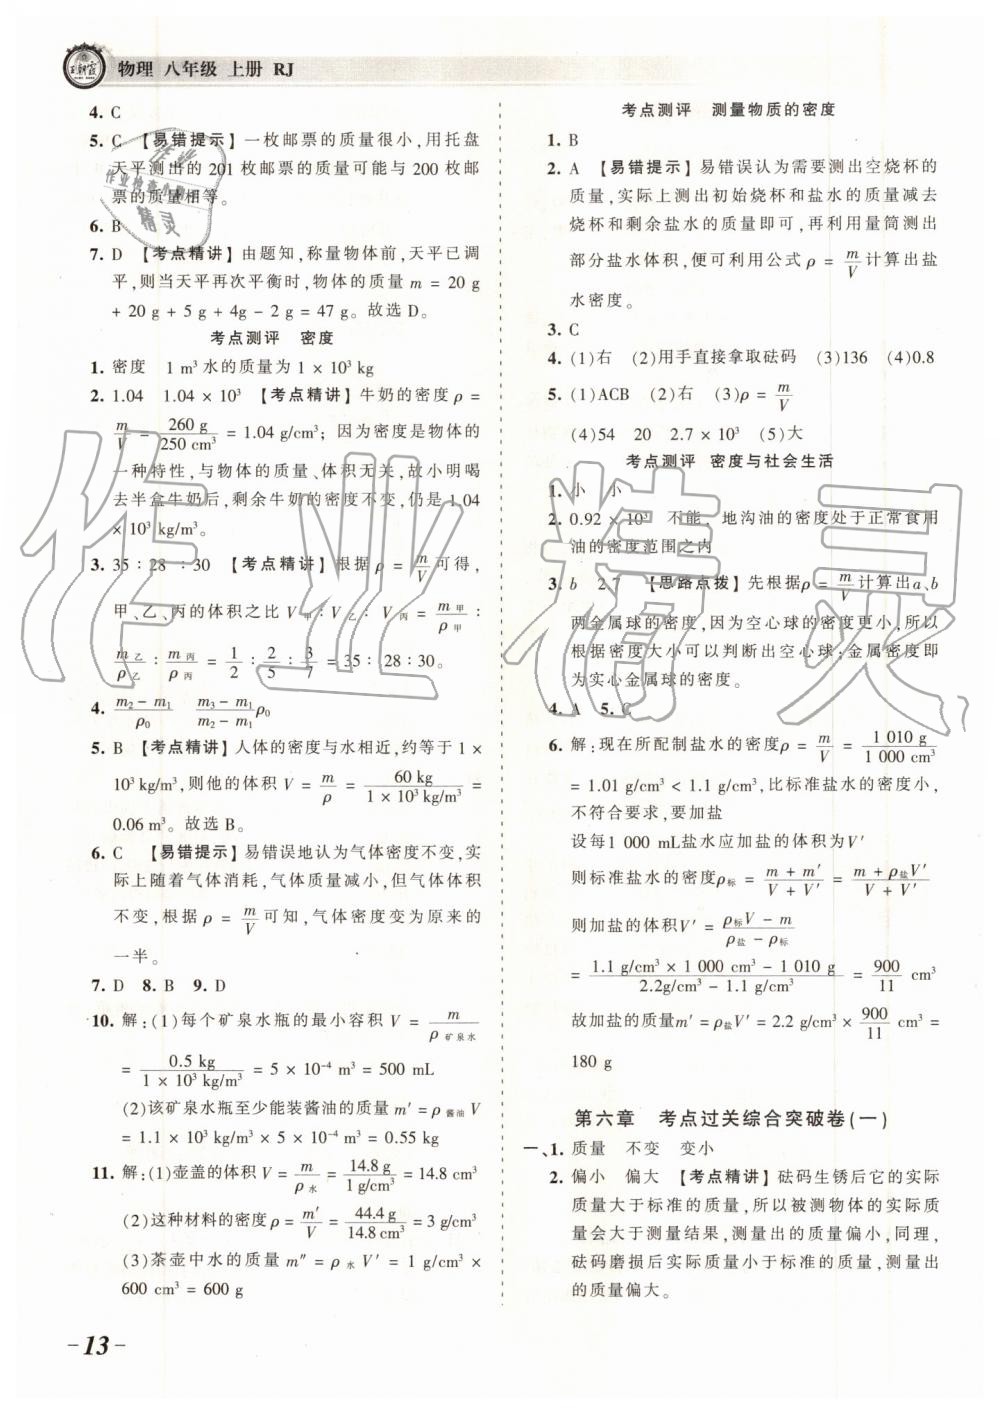 王朝霞
物理 八年级 上册 RJ
4. C
5. C 【易错提示】一枚邮票的质量很小,用托盘
天平测出的 201 枚邮票的质量可能与 200 枚邮
票的质量相等。
6. B
7. D 【考点精讲】由题知,称量物体前,天平已调
平,则当天平再次平衡时,物体的质量 m = 20 g
+ 20 g + 5 g + 4g - 2 g = 47 g。故选 D。
考点测评 密度
1. 密度 1 m³ 水的质量为 1 × 10³ kg
2. 1.04 1.04 × 10³ 【考点精讲】牛奶的密度 ρ =
m/V = 260 g/250 cm³ = 1.04 g/cm³；因为密度是物体的
一种特性,与物体的质量、体积无关,故小明喝
去半盒牛奶后,剩余牛奶的密度不变,仍是 1.04
× 10³ kg/m³。
3. 35∶28∶30 【考点精讲】根据 ρ = m/V 可得,
甲、乙、丙的体积之比 V甲∶V乙∶V丙 = m甲/ρ甲∶
m乙/ρ乙∶m丙/ρ丙 = 1/2∶2/5∶3/7 = 35∶28∶30。
4. (m₂ - m₁)/ρ₀ (m₃ - m₁)/(m₂ - m₁)ρ₀
5. B 【考点精讲】人体的密度与水相近,约等于 1 ×
10³ kg/m³,则他的体积 V = m/ρ = 60 kg/(1 × 10³ kg/m³) =
0.06 m³。故选 B。
6. C 【易错提示】易错误地认为气体密度不变,实
际上随着气体消耗,气体质量减小,但气体体积
不变,根据 ρ = m/V 可知,气体密度变为原来的
一半。
7. D 8. B 9. D
10. 解:(1)每个矿泉水瓶的最小容积 V = m/ρ矿泉水
= 0.5 kg/(1 × 10³ kg/m³) = 5 × 10⁻⁴ m³ = 500 mL
(2)该矿泉水瓶至少能装酱油的质量 m′ = ρ酱油 V
= 1.1 × 10³ kg/m³ × 5 × 10⁻⁴ m³ = 0.55 kg
11. 解:(1)壶盖的体积 V = m/ρ水 = 14.8 g/(1 g/cm³) = 14.8 cm³
(2)这种材料的密度ρ = m′/V = 44.4 g/14.8 cm³ = 3 g/cm³
(3)茶壶中水的质量 m″ = ρ水 V′ = 1 g/cm³ ×
600 cm³ = 600 g
考点测评 测量物质的密度
1. B
2. A 【易错提示】易错误认为需要测出空烧杯的
质量,实际上测出初始烧杯和盐水的质量减去
烧杯和剩余盐水的质量即可,再利用量筒测出
部分盐水体积,便可利用公式 ρ = m/V 计算出盐
水密度。
3. C
4. (1)右 (2)用手直接拿取砝码 (3)136 (4)0.8
5. (1)ACB (2)右 (3)ρ = m/V
(4)54 20 2.7 × 10³ (5)大
考点测评 密度与社会生活
1. 小 小
2. 0.92 × 10³ 不能，地沟油的密度处于正常食用
油的密度范围之内
3. b 2.7 【思路点拨】先根据ρ = m/V 计算出a、b
两金属球的密度,因为空心球的密度更小,所以
根据密度大小可以判断出空心球;金属密度即
为实心金属球的密度。
4. A 5. C
6. 解:现在所配制盐水的密度ρ = m/V = 1 010 g/1 000 cm³
= 1.01 g/cm³ < 1.1 g/cm³,比标准盐水的密度小,
不符合要求,要加盐
设每1 000 mL盐水应加盐的体积为V′
则标准盐水的密度ρ标 = (m + m′)/(V + V′) = (m + ρ盐V′)/(V + V′)
则加盐的体积V′ = (ρ标V - m)/(ρ盐 - ρ标)
= (1.1 g/cm³ × 1 000 cm³ - 1 010 g)/(2.2g/cm³ - 1.1 g/cm³) = 900/11 cm³
故加盐的质量m′ = ρ盐V′ = 2.2 g/cm³ × 900/11 cm³ =
180 g
第六章 考点过关综合突破卷(一)
一、1. 质量 不变 变小
2. 偏小 偏大 【考点精讲】砝码生锈后它的实际
质量大于标准的质量,所以被测物体的实际质
量会大于测量结果,测量出的质量偏小,同理,
砝码磨损后实际质量小于标准的质量,测量出
的质量偏大。
- 13 -
作业精灵
作业
作业检查小助手
精灵